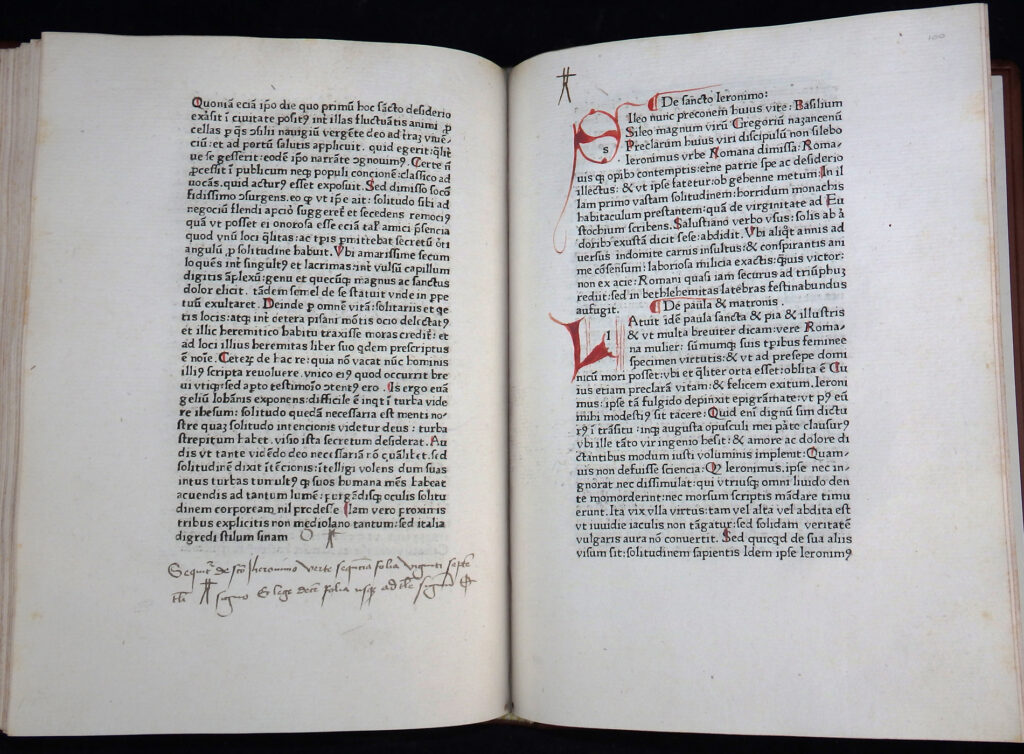 Quoniā eciā ipo die quo primū hoc sācto desiderio
exāsit ī ciuitate positꝰ int illas fluctuātis animi ꝓ
cellas p qͥs ↄsilii nauigiū vergēte deo ad traꝫ vnie-
ciū: et ad portū salutis applicuit. quid egerit: qͣlit
ue se gesserit: eodē ipo narrāte ↄgnouimꝰ. Certe ñ
ꝓcessit ī publicum neqꝫ populi concionē: classico ad
uocās. quid acturꝰ esset exposuit. Sed dimisso socō
fidissimo ↄsurgens. eo ꝙ vt ipe ait: solitudo sibi ad
negociū flendi apcio suggeret et secedens remociꝰ
quā vt posset ei onorosa esse eciā tal amici psencia
quod vnū loci qͣlitas: ac tpis pmittebat secretū ōti
angulū ꝓ solitudine habuit. Vbi amarissime secum
loquēs int singultꝰ et lacrimas: int vulsū capillum
digitis āplexū: genu et quecūqꝫ magnus ac sanctus
dolor elicit. tādem semel de se statuit vnde in ppe
tuū exultaret. Deinde p omnē vitā: solitariis et qͥe
tis locis: atqꝫ int cetera pisani mōtis ocio delectatꝰ
et illic heremitico habitu traxisse moras creditꝭ: et
ad loci illius heremitas liber suo qdem prescriptus
ē noīe. Ceteꝝ de hac re: quia nō vacat nūc hominis
illiꝰ scripta reuoluere. vnico eiꝰ quod occurrit bre
ui vtiqꝫ: sed apto testimoīo ↄtentꝰ ero. Is ergo euā
geliū Iohānis exponens: difficile ē inqͥt ī turba vide
re ihesum: solitudo quedā necessaria est menti no-
stre quaꝫ solitudo intencionis videtur deus: turba
strepitum habet. visio ista secretum desiderat. Au
dis vt tante vidēdo deo necessariā rō quālibet. sed
solitudinē dixit ītēcionis: ītelligi volens dum suas
intus turbas tumultꝰqꝫ suos humana mēs habeat
acuendis ad tantum lumē: purgādisqꝫ oculis solitu
dinem corpoream nil prodesse Iam vero proximis
tribus explicitis non mediolano tantum: sed italia
digredi stilum sinam
Sequitꝰ de scō Iheronimo verte sequētia folia viginti septē
signo Et lege decē folia usqꝫ ad tle signū
100
De sancto Ieronimo:
s
Ileo nunc preconem huius vite: Basilium
Sileo magnum virū Gregoriū nazancenū
Preclarum huius viri discipulū non silebo
Ieronimus vrbe Romana dimissa: Roma-
nis qꝫ opibꝰ contemptis: eine patrie spe ac desiderio
illectus: & vt ipse fatetur: ob gehenne metum: In il
lam primo vastam solitudinem: horridum monachis
habitaculum prestantem: quā de virginitate ad Eu
stochium scribens. Salustiano verbo vsus: solis ab ā
doribꝰ exustā dicit sese: abdidit. Vbi aliqͦt annis ad
uersus indomite carnis insultus: & conspirantis ani
me cōsensum: laboriosa milicia exactis: qͣuis victor:
non ex acie: Romani quasi iam securus ad triūphuꝫ
rediit: sed in bethlehemitas latebras festinabundus
aufugit. De paula & matronis.
l
Atuit idē paula sancta & pia & illustris
& vt multa breuiter dicam: vere Roma-
na mulier: sūmumqꝫ suis tpibus feminee
specimen virtutis: & vt ad presepe domi
nicū mori posset: vbi et qͣliter orta esset: oblita ē Cu
ius etiam preclarā vitam: & felicem exitum. Ieroni
mus: ipse tā fulgido depinxit epigrāmate: vt pꝰ eū
mihi modestiꝰ sit tacere: Quid eni dignū sim dictu
rꝰ ī trāsitu: inqꝫ augusta opusculi mei pāte clausurꝰ
vbi ille tāto vir ingenio hesit: & amore ac dolore di
ctantibus modum iusti voluminis impleuit: Quam-
uis non defuisse sciencia: Qꝫ Ieronimus. ipse nec in-
gnōrat nec dissimulat: qui vtriusqꝫ omni liuido den
te momorderint: nec morsum scriptis mādare timu
erunt. Ita vix vlla virtus: tam vel alta vel abdita est
vt inuidie iaculis non tāgatur: sed solidam veritatē
vulgaris aura nō conuertit. Sed quicqd de sua aliis
visum sit: solitudinem sapientis Idem ipse Ieronimꝰ